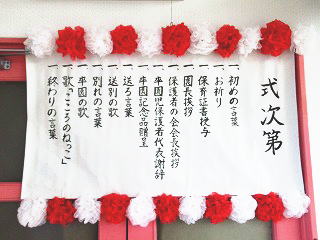 式次第
一 初めの言葉
一 お祈り
一 保育証書授与
一 園長挨拶
一 保護者の会会長挨拶
一 卒園児保護者代表謝辞
一 卒園記念品贈呈
一 送る言葉
一 送別の歌
一 別れの言葉
一 卒園の歌
一 歌「こころのねっこ」
一 終わりの言葉